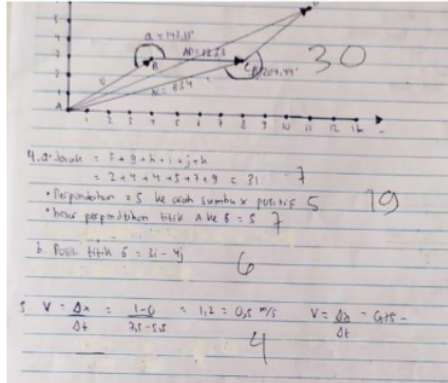 a = 143,13°
B
C
204,44°
30
A
1 2 3 4 5 6 7 8 9 10 11 12 13 14
4. a. Jarak = f + g + h + i + j + k
= 2 + 4 + 4 + 5 + 7 + 9 = 31 7
• Perpindahan = 5 ke arah sumbu x positif 5 19
• besar perpindahan titik A ke G = 5 7
b. Posisi titik G = 3i - 4j 6
5 V = Δx / Δt = 1-0 / 7,5-5,5 = 1,2 = 0,5 m/s V = Δx / Δt
4